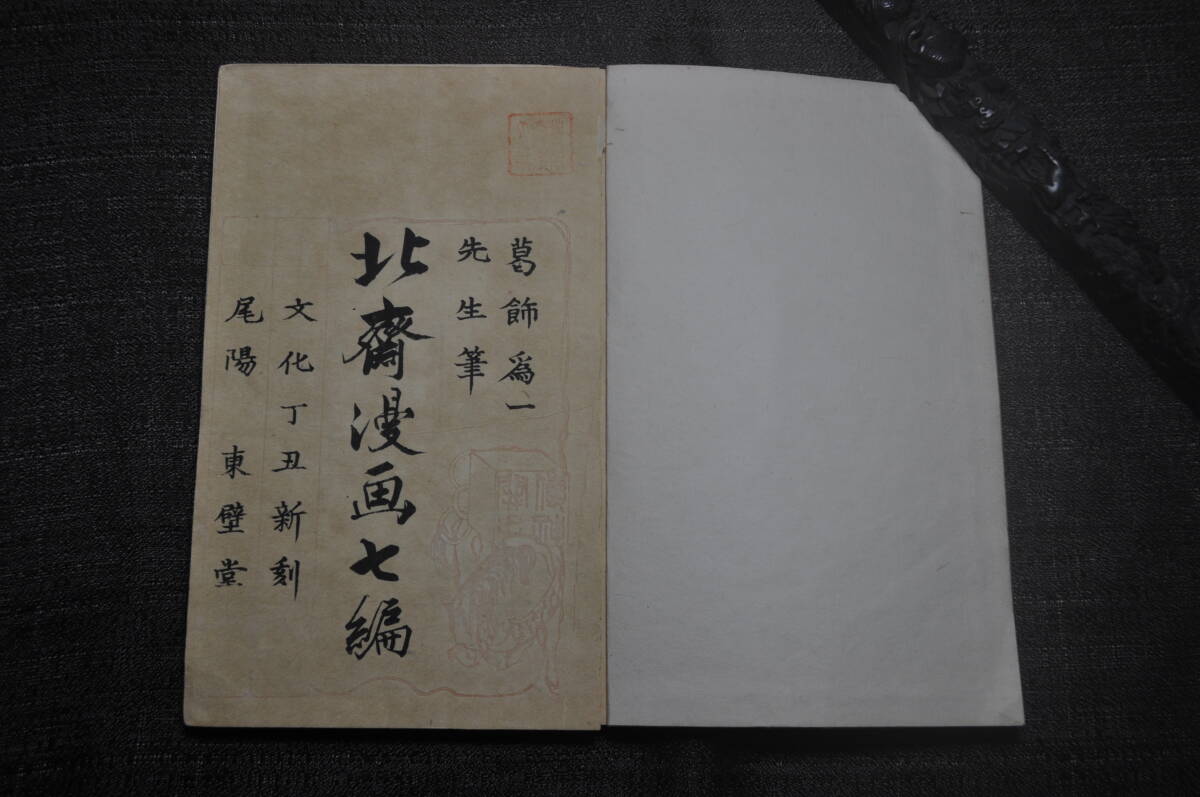 葛飾為一
先生筆
北齋漫画七編
文化丁丑新刻
尾陽　東壁堂